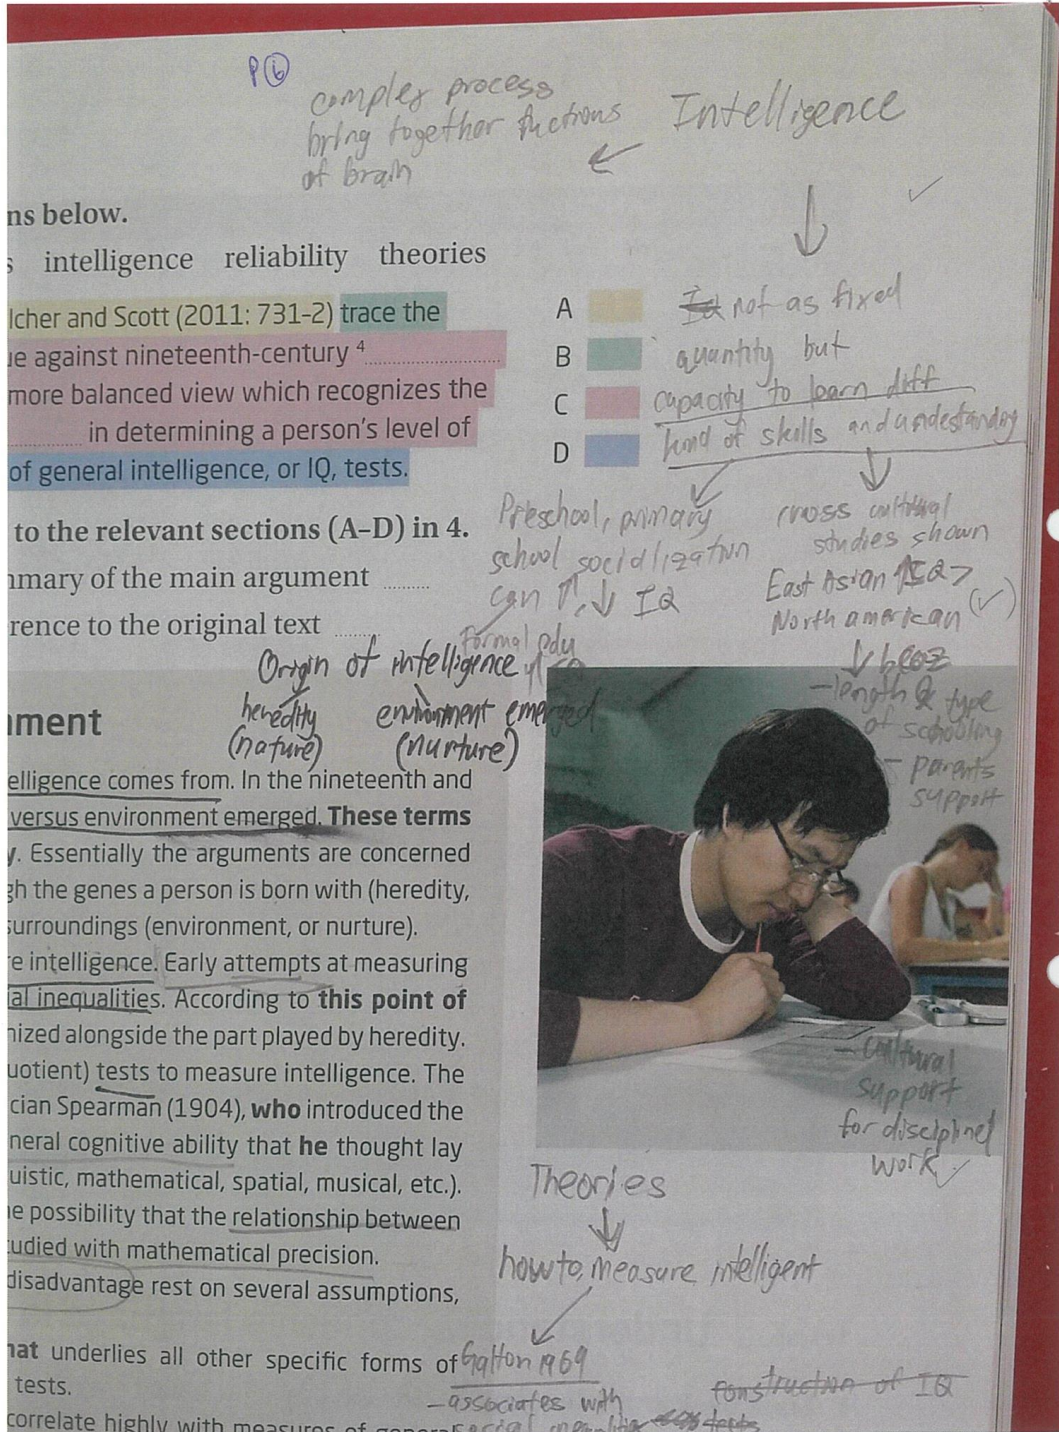 P 6
complex process
bring together fuctions
of brain
Intelligence
ns below.
s intelligence reliability theories
lcher and Scott (2011: 731-2) trace the
ue against nineteenth-century 4
more balanced view which recognizes the
in determining a person's level of
of general intelligence, or IQ, tests.
A
B
C
D
not as fixed
quantity but
capacity to learn diff
kind of skills and undestanding
to the relevant sections (A–D) in 4.
mmary of the main argument
rence to the original text
Preschool, primary
school socialization
can ↑, ↓ IQ
Formal edu
cross cultural
studies shown
East Asian ↑IQ >
North american (✓)
↓ bcoz
- length & type
of schooling
- parents
support
Origin of intelligence
heredity
(nature)
environment emerged
(nurture)
nment
elligence comes from. In the nineteenth and
versus environment emerged. These terms
y. Essentially the arguments are concerned
gh the genes a person is born with (heredity,
surroundings (environment, or nurture).
re intelligence. Early attempts at measuring
ial inequalities. According to this point of
nized alongside the part played by heredity.
uotient) tests to measure intelligence. The
cian Spearman (1904), who introduced the
neral cognitive ability that he thought lay
uistic, mathematical, spatial, musical, etc.).
e possibility that the relationship between
tudied with mathematical precision.
disadvantage rest on several assumptions,
hat underlies all other specific forms of
tests.
correlate highly with measures of general
- cultural
support
for disciplined
work
Theories
how to measure intelligent
Galton 1969
- associates with
construction of IQ
tests